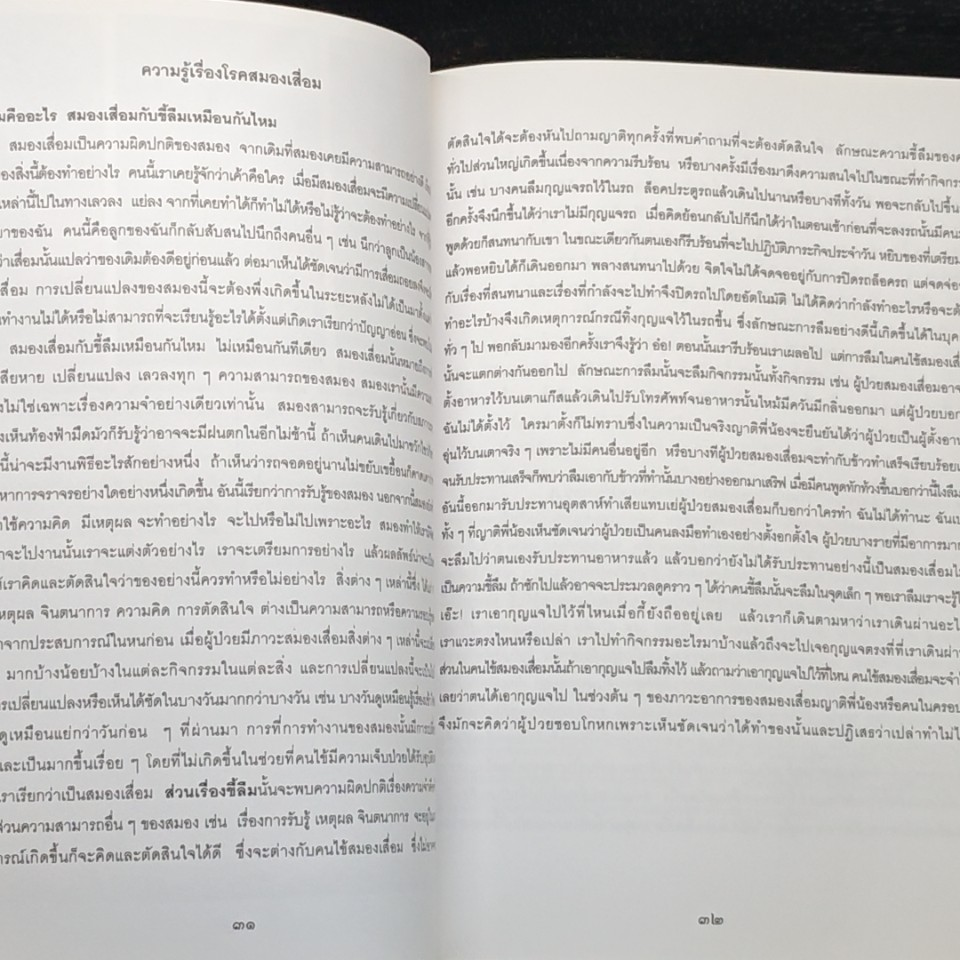 ความรู้เรื่องโรคสมองเสื่อม
คืออะไร สมองเสื่อมกับขี้ลืมเหมือนกันไหม
สมองเสื่อมเป็นความผิดปกติของสมอง จากเดิมที่สมองเคยมีความสามารถอย่างดี
องสิ่งนี้ต้องทำอย่างไร คนนี้เราเคยรู้จักว่าเค้าคือใคร เมื่อมีสมองเสื่อมจะมีความเปลี่ยนแปลง
เหล่านี้ไปในทางเลวลง แย่ลง จากที่เคยทำได้ก็ทำไม่ได้หรือไม่รู้ว่าจะต้องทำอย่างไร
ของฉัน คนนี้คือลูกของฉันก็กลับสับสนไปนึกถึงคนอื่น ๆ เช่น นึกว่าลูกเป็นน้อง
ว่าเสื่อมนั้นแปลว่าของเดิมต้องดีอยู่ก่อนแล้ว ต่อมาเห็นได้ชัดเจนว่ามีการเสื่อมถอยลง
เสื่อม การเปลี่ยนแปลงของสมองนี้จะต้องพึ่งเกิดขึ้นในระยะหลังไม่ได้เป็นมา
ทำงานไม่ได้หรือไม่สามารถที่จะเรียนรู้อะไรได้ตั้งแต่เกิดเราเรียกว่าปัญญาอ่อน
สมองเสื่อมกับขี้ลืมเหมือนกันไหม ไม่เหมือนกันทีเดียว สมองเสื่อมนั้นหมายถึง
สียหาย เปลี่ยนแปลง เลวลงทุก ๆ ความสามารถของสมอง สมองเรานั้นมีความ
งไม่ใช่เฉพาะเรื่องความจำอย่างเดียวเท่านั้น สมองสามารถจะรับรู้เกี่ยวกับ
งเห็นท้องฟ้ามืดมัวก็รับรู้ว่าอาจจะมีฝนตกในอีกไม่ช้านี้ ถ้าเห็นคนเดินไปมาขวักไขว่
นี้น่าจะมีงานพิธีอะไรสักอย่างหนึ่ง ถ้าเห็นว่ารถจอดอยู่นานไม่ขยับเขยื้อนก็คาด
หาการจราจรอย่างใดอย่างหนึ่งเกิดขึ้น อันนี้เรียกว่าการรับรู้ของสมอง นอกจากนี้สมอง
ใช้ความคิด มีเหตุผล จะทำอย่างไร จะไปหรือไม่ไปเพราะอะไร สมองทำให้เรา
าจะไปงานนั้นเราจะแต่งตัวอย่างไร เราจะเตรียมการอย่างไร แล้วผลลัพธ์น่าจะ
ห้เราคิดและตัดสินใจว่าของอย่างนี้ควรทำหรือไม่อย่างไร สิ่งต่าง ๆ เหล่านี้ซึ่ง
หตุผล จินตนาการ ความคิด การตัดสินใจ ต่างเป็นความสามารถหรือความ
าจากประสบการณ์ในหนก่อน เมื่อผู้ป่วยมีภาวะสมองเสื่อมสิ่งต่าง ๆ เหล่านี้จะ
มากบ้างน้อยบ้างในแต่ละกิจกรรมในแต่ละสิ่ง และการเปลี่ยนแปลงนี้จะ
รเปลี่ยนแปลงหรือเห็นได้ชัดในบางวันมากกว่าบางวัน เช่น บางวันดูเหมือน
ดูเหมือนแย่กว่าวันก่อน ๆ ที่ผ่านมา การที่การทำงานของสมองนั้นมีการ
และเป็นมากขึ้นเรื่อย ๆ โดยที่ไม่เกิดขึ้นในช่วยที่คนไข้มีความเจ็บป่วยได้รับ
เราเรียกว่าเป็นสมองเสื่อม ส่วนเรื่องขี้ลืมนั้นจะพบความผิดปกติเรื่องความจำ
ส่วนความสามารถอื่น ๆ ของสมอง เช่น เรื่องการรับรู้ เหตุผล จินตนาการ จะอยู่
ารณ์เกิดขึ้นก็จะคิดและตัดสินใจได้ดี ซึ่งจะต่างกับคนไข้สมองเสื่อม
๓๑
ตัดสินใจได้จะต้องหันไปถามญาติทุกครั้งที่พบคำถามที่จะต้องตัดสินใจ ลักษณะความขี้ลืมของ
ทั่วไปส่วนใหญ่เกิดขึ้นเนื่องจากความรีบร้อน หรือบางครั้งมีเรื่องมาดึงความสนใจไปในขณะที่ทำกิจกร
นั้น เช่น บางคนลืมกุญแจรถไว้ในรถ ล็อคประตูรถแล้วเดินไปนานหรือบางทีทั้งวัน พอจะกลับไปขึ้น
อีกครั้งจึงนึกขึ้นได้ว่าเราไม่มีกุญแจรถ เมื่อคิดย้อนกลับไปก็นึกได้ว่าในตอนเช้าก่อนที่จะลงรถนั้นมีคน
พูดด้วยก็สนทนากับเขา ในขณะเดียวกันตนเองก็รีบร้อนที่จะไปปฏิบัติภาระกิจประจำวัน หยิบของที่เตรียม
แล้วพอหยิบได้ก็เดินออกมา พลางสนทนาไปด้วย จิตใจไม่ได้จดจออยู่กับการปิดรถล็อครถ แต่จดจ่อ
กับเรื่องที่สนทนาและเรื่องที่กำลังจะไปทำจึงปิดรถไปโดยอัตโนมัติ ไม่ได้คิดว่ากำลังทำอะไรหรือจะต้
ทำอะไรบ้างจึงเกิดเหตุการณ์กรณีทิ้งกุญแจไว้ในรถขึ้น ซึ่งลักษณะการลืมอย่างดีนี้เกิดขึ้นได้ในบุค
ทั่ว ๆ ไป พอกลับมามองอีกครั้งเราจึงรู้ว่า อ๋อ! ตอนนั้นเรารีบร้อนเราเผลอไป แต่การลืมในคนไข้สมองเสื่
นั้นจะแตกต่างกันออกไป ลักษณะการลืมนั้นจะลืมกิจกรรมนั้นทั้งกิจกรรม เช่น ผู้ป่วยสมองเสื่อมอาจ
ตั้งอาหารไว้บนเตาแก๊สแล้วเดินไปรับโทรศัพท์จนอาหารนั้นไหม้มีควันมีกลิ่นออกมา แต่ผู้ป่วยบอก
ฉันไม่ได้ตั้งไว้ ใครมาตั้งก็ไม่ทราบซึ่งในความเป็นจริงญาติพี่น้องจะยืนยันได้ว่าผู้ป่วยเป็นผู้ตั้งอา
อุ่นไว้บนเตาจริง ๆ เพราะไม่มีคนอื่นอยู่อีก หรือบางที่ผู้ป่วยสมองเสื่อมจะทำกับข้าวทำเสร็จเรียบร้อยแ
จนรับประทานเสร็จก็พบว่าลืมเอากับข้าวที่ทำนั้นบางอย่างออกมาเสริฟ เมื่อมีคนพูดทักท้วงขึ้นบอกว่านี่ไงลืม
อันนี้ออกมารับประทานอุตสาห์ทำเสียแทบเย่ผู้ป่วยสมองเสื่อมก็บอกว่าใครทำ ฉันไม่ได้ทำนะ ฉันเป
ทั้ง ๆ ที่ญาติพี่น้องเห็นชัดเจนว่าผู้ป่วยเป็นคนลงมือทำเองอย่างตั้งอกตั้งใจ ผู้ป่วยบางรายที่มีอาการมาก
จะลืมไปว่าตนเองรับประทานอาหารแล้ว แล้วบอกว่ายังไม่ได้รับประทานอย่างนี้เป็นสมองเสื่อมไ
เป็นความขี้ลืม ถ้าซักไปแล้วอาจจะประมวลดูคราว ๆ ได้ว่าคนขี้ลืมนั้นจะลืมในจุดเล็ก ๆ พอเราลืมเราจะรู้ไ
เอ๊ะ! เราเอากุญแจไปไว้ที่ไหนเมื่อกี้ยังถืออยู่เลย แล้วเราก็เดินตามหาว่าเราเดินผ่านอะไ
เราแวะตรงไหนหรือเปล่า เราไปทำกิจกรรมอะไรมาบ้างแล้วถึงจะไปเจอกุญแจตรงที่ที่เราเดินผ่า
ส่วนในคนไข้สมองเสื่อมนั้นถ้าเอากุญแจไปลืมทิ้งไว้ แล้วถามว่าเอากุญแจไปไว้ที่ไหน คนไข้สมองเสื่อมจะจำไ
เลยว่าตนได้เอากุญแจไป ในช่วงต้น ๆ ของภาวะอาการของสมองเสื่อมญาติพี่น้องหรือคนในครอบ
จึงมักจะคิดว่าผู้ป่วยชอบโกหกเพราะเห็นชัดเจนว่าได้ทำของนั้นและปฏิเสธว่าเปล่าทำไม่ไ
๓๒